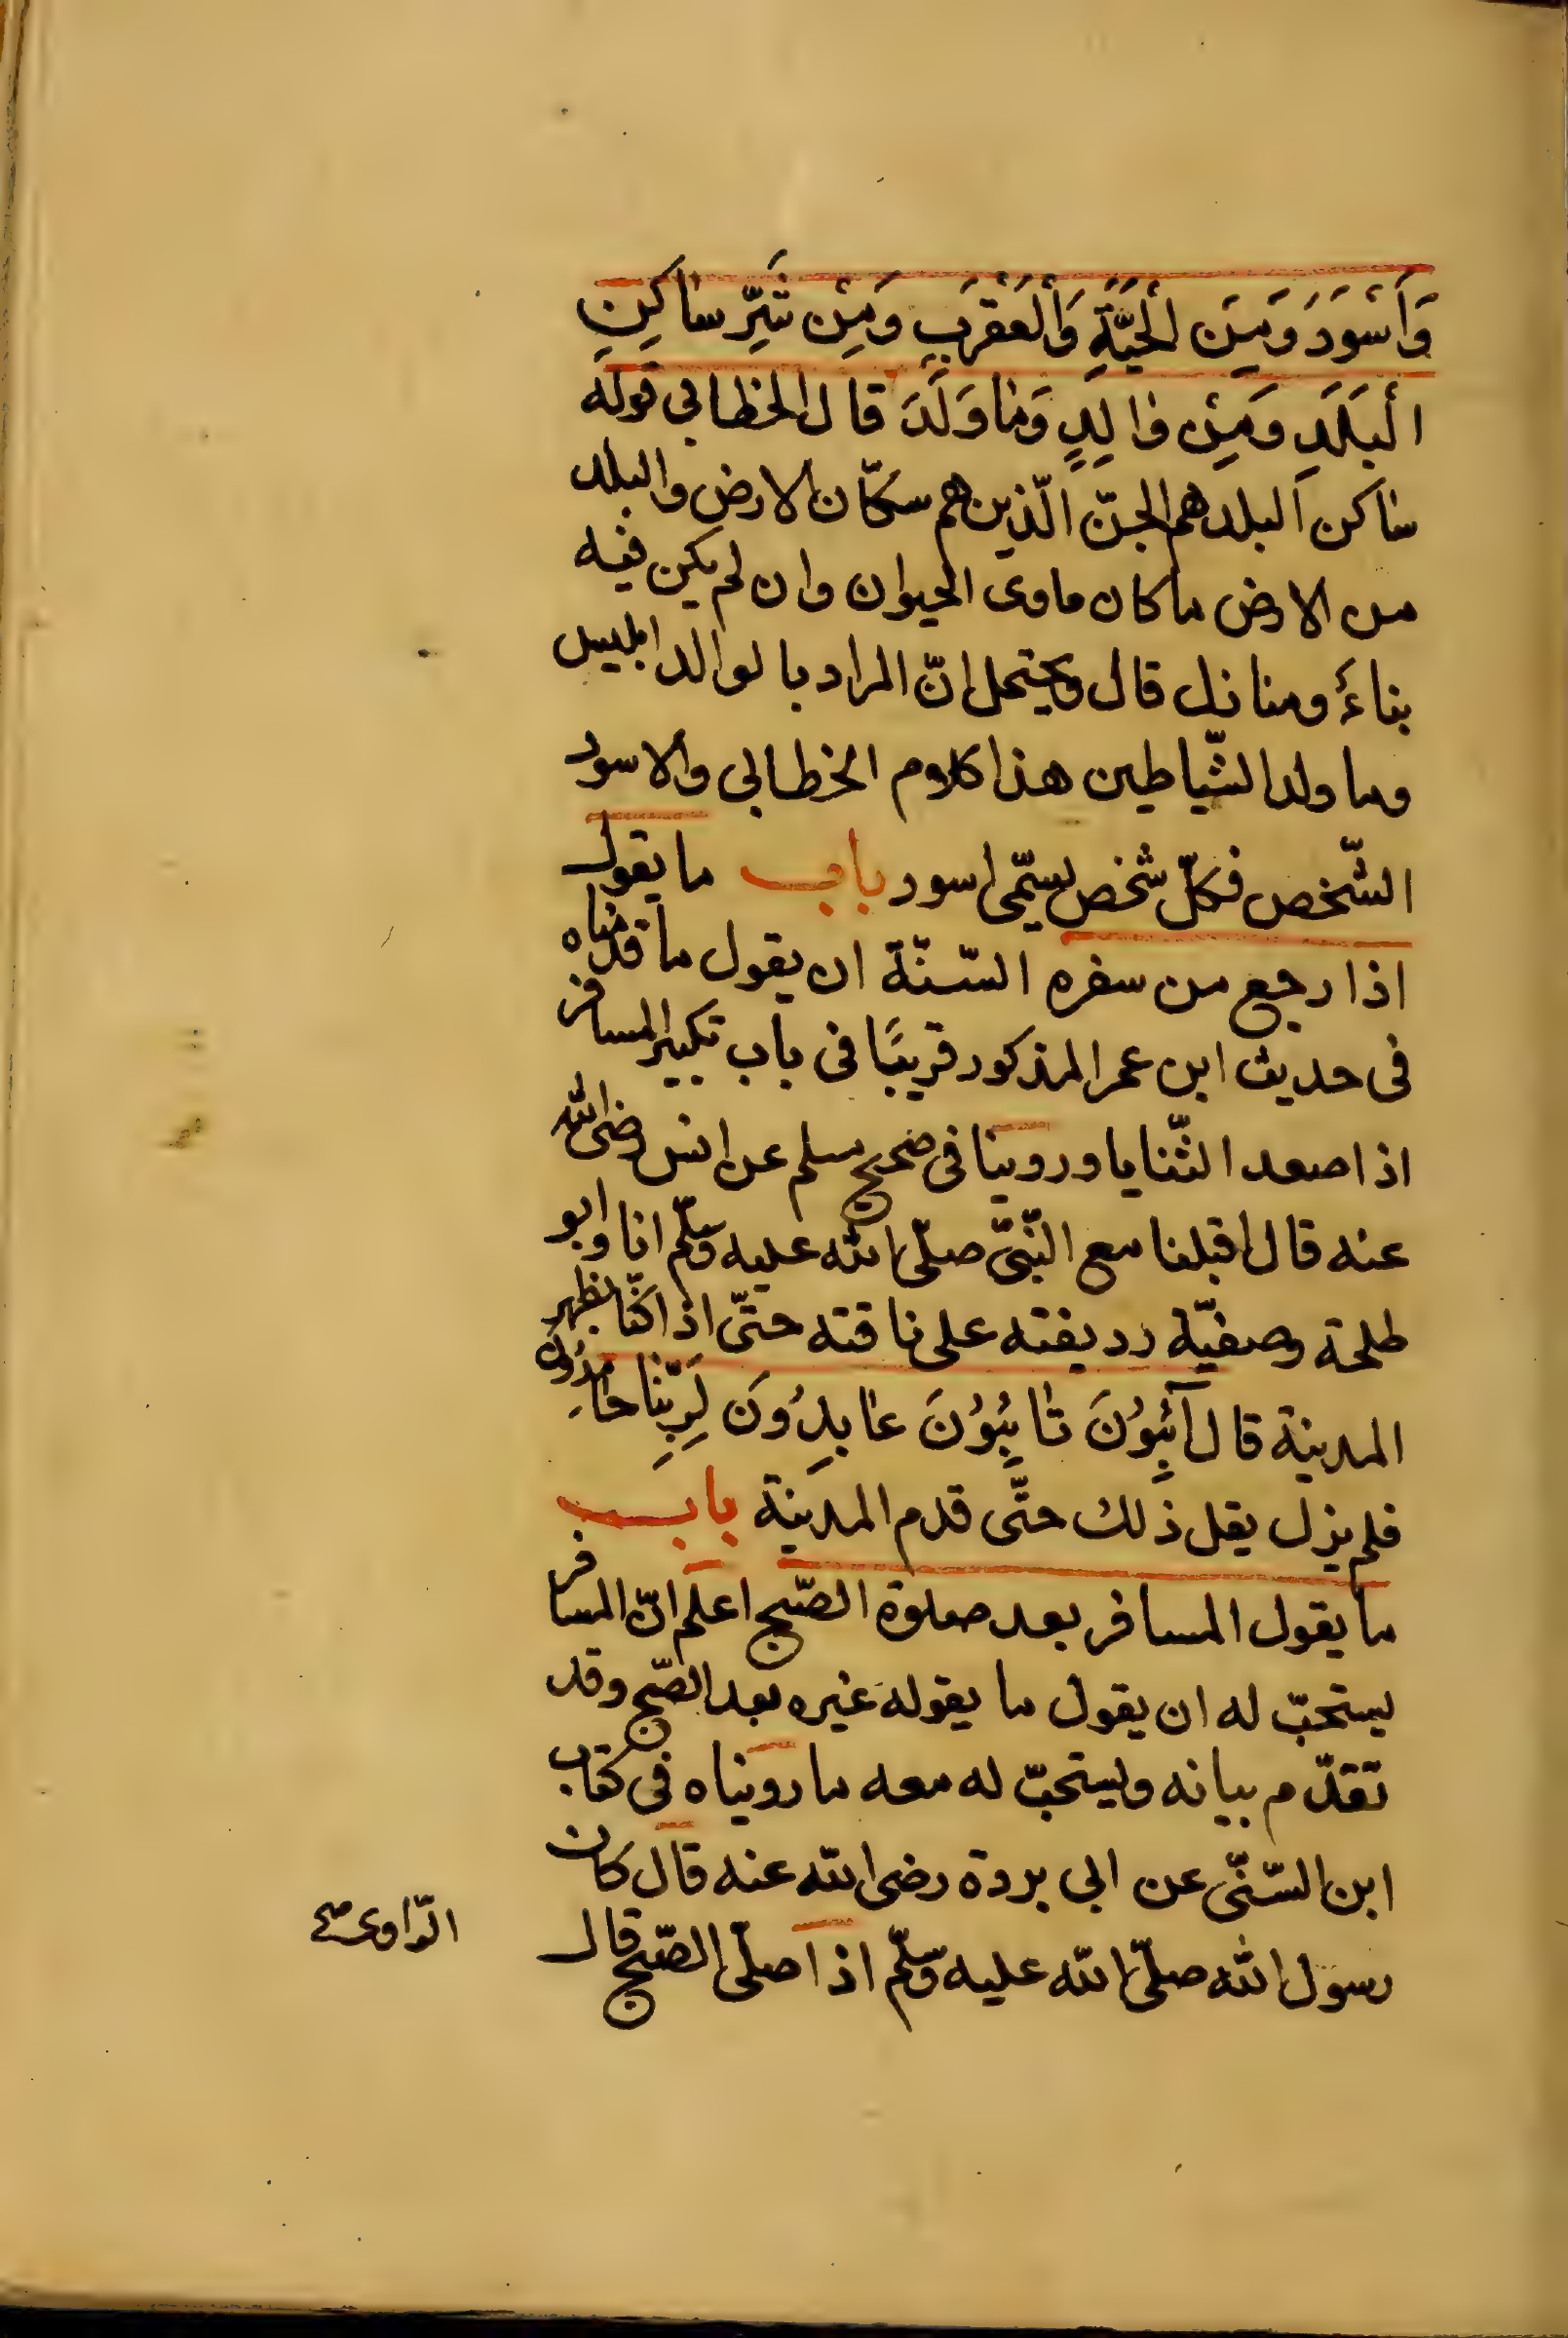 وَأَسْوَدَ وَمِنَ الْحَيَّةِ وَالْعَقْرَبِ وَمِنْ شَرِّ سٰاكِنِ
الْبَلَدِ وَمِنْ وٰالِدٍ وَمٰا وَلَدَ قال الخطابي قوله
ساكن البلد هم الجنّ الّذين هم سكّان الارض والبلد
من الارض ما كان ماوى الحيوان وان لم يكن فيه
بناءٌ ومنازل قال ويحتمل انّ المراد بالوالد ابليس
وما ولد الشّياطين هذا كلام الخطابي والاسود
الشّخص فكلّ شخص يسمّى اسود باب ما يقول
اذا رجع من سفره السّنّة ان يقول ما قدّمناه
فى حديث ابن عمر المذكور قريبًا فى باب تكبير المسافر
اذا صعد الثّنايا وروينا فى صحيح مسلم عن انس رضى الله
عنه قال اقبلنا مع النّبىّ صلّى الله عليه وسلّم انا وابو
طلحة وصفيّة رديفته على ناقته حتّى اذا كنّا بظهر
المدينة قال آئِبُوُنَ تٰائِبُوُنَ عٰابِدُونَ لِرَبِّنٰا حٰامِدُونَ
فلم يزل يقل ذلك حتّى قدم المدينة باب
ما يقول المسافر بعد صلوة الصّبح اعلم انّ المسافر
يستحبّ له ان يقول ما يقوله غيره بعد الصّبح وقد
تقدّم بيانه ويستحبّ له معه ما رويناه فى كتاب
ابن السّنّى عن ابي بردة رضى الله عنه قال كان
رسول الله صلّى الله عليه وسلّم اذا صلّى الصّبح قال
الرّاوى صح